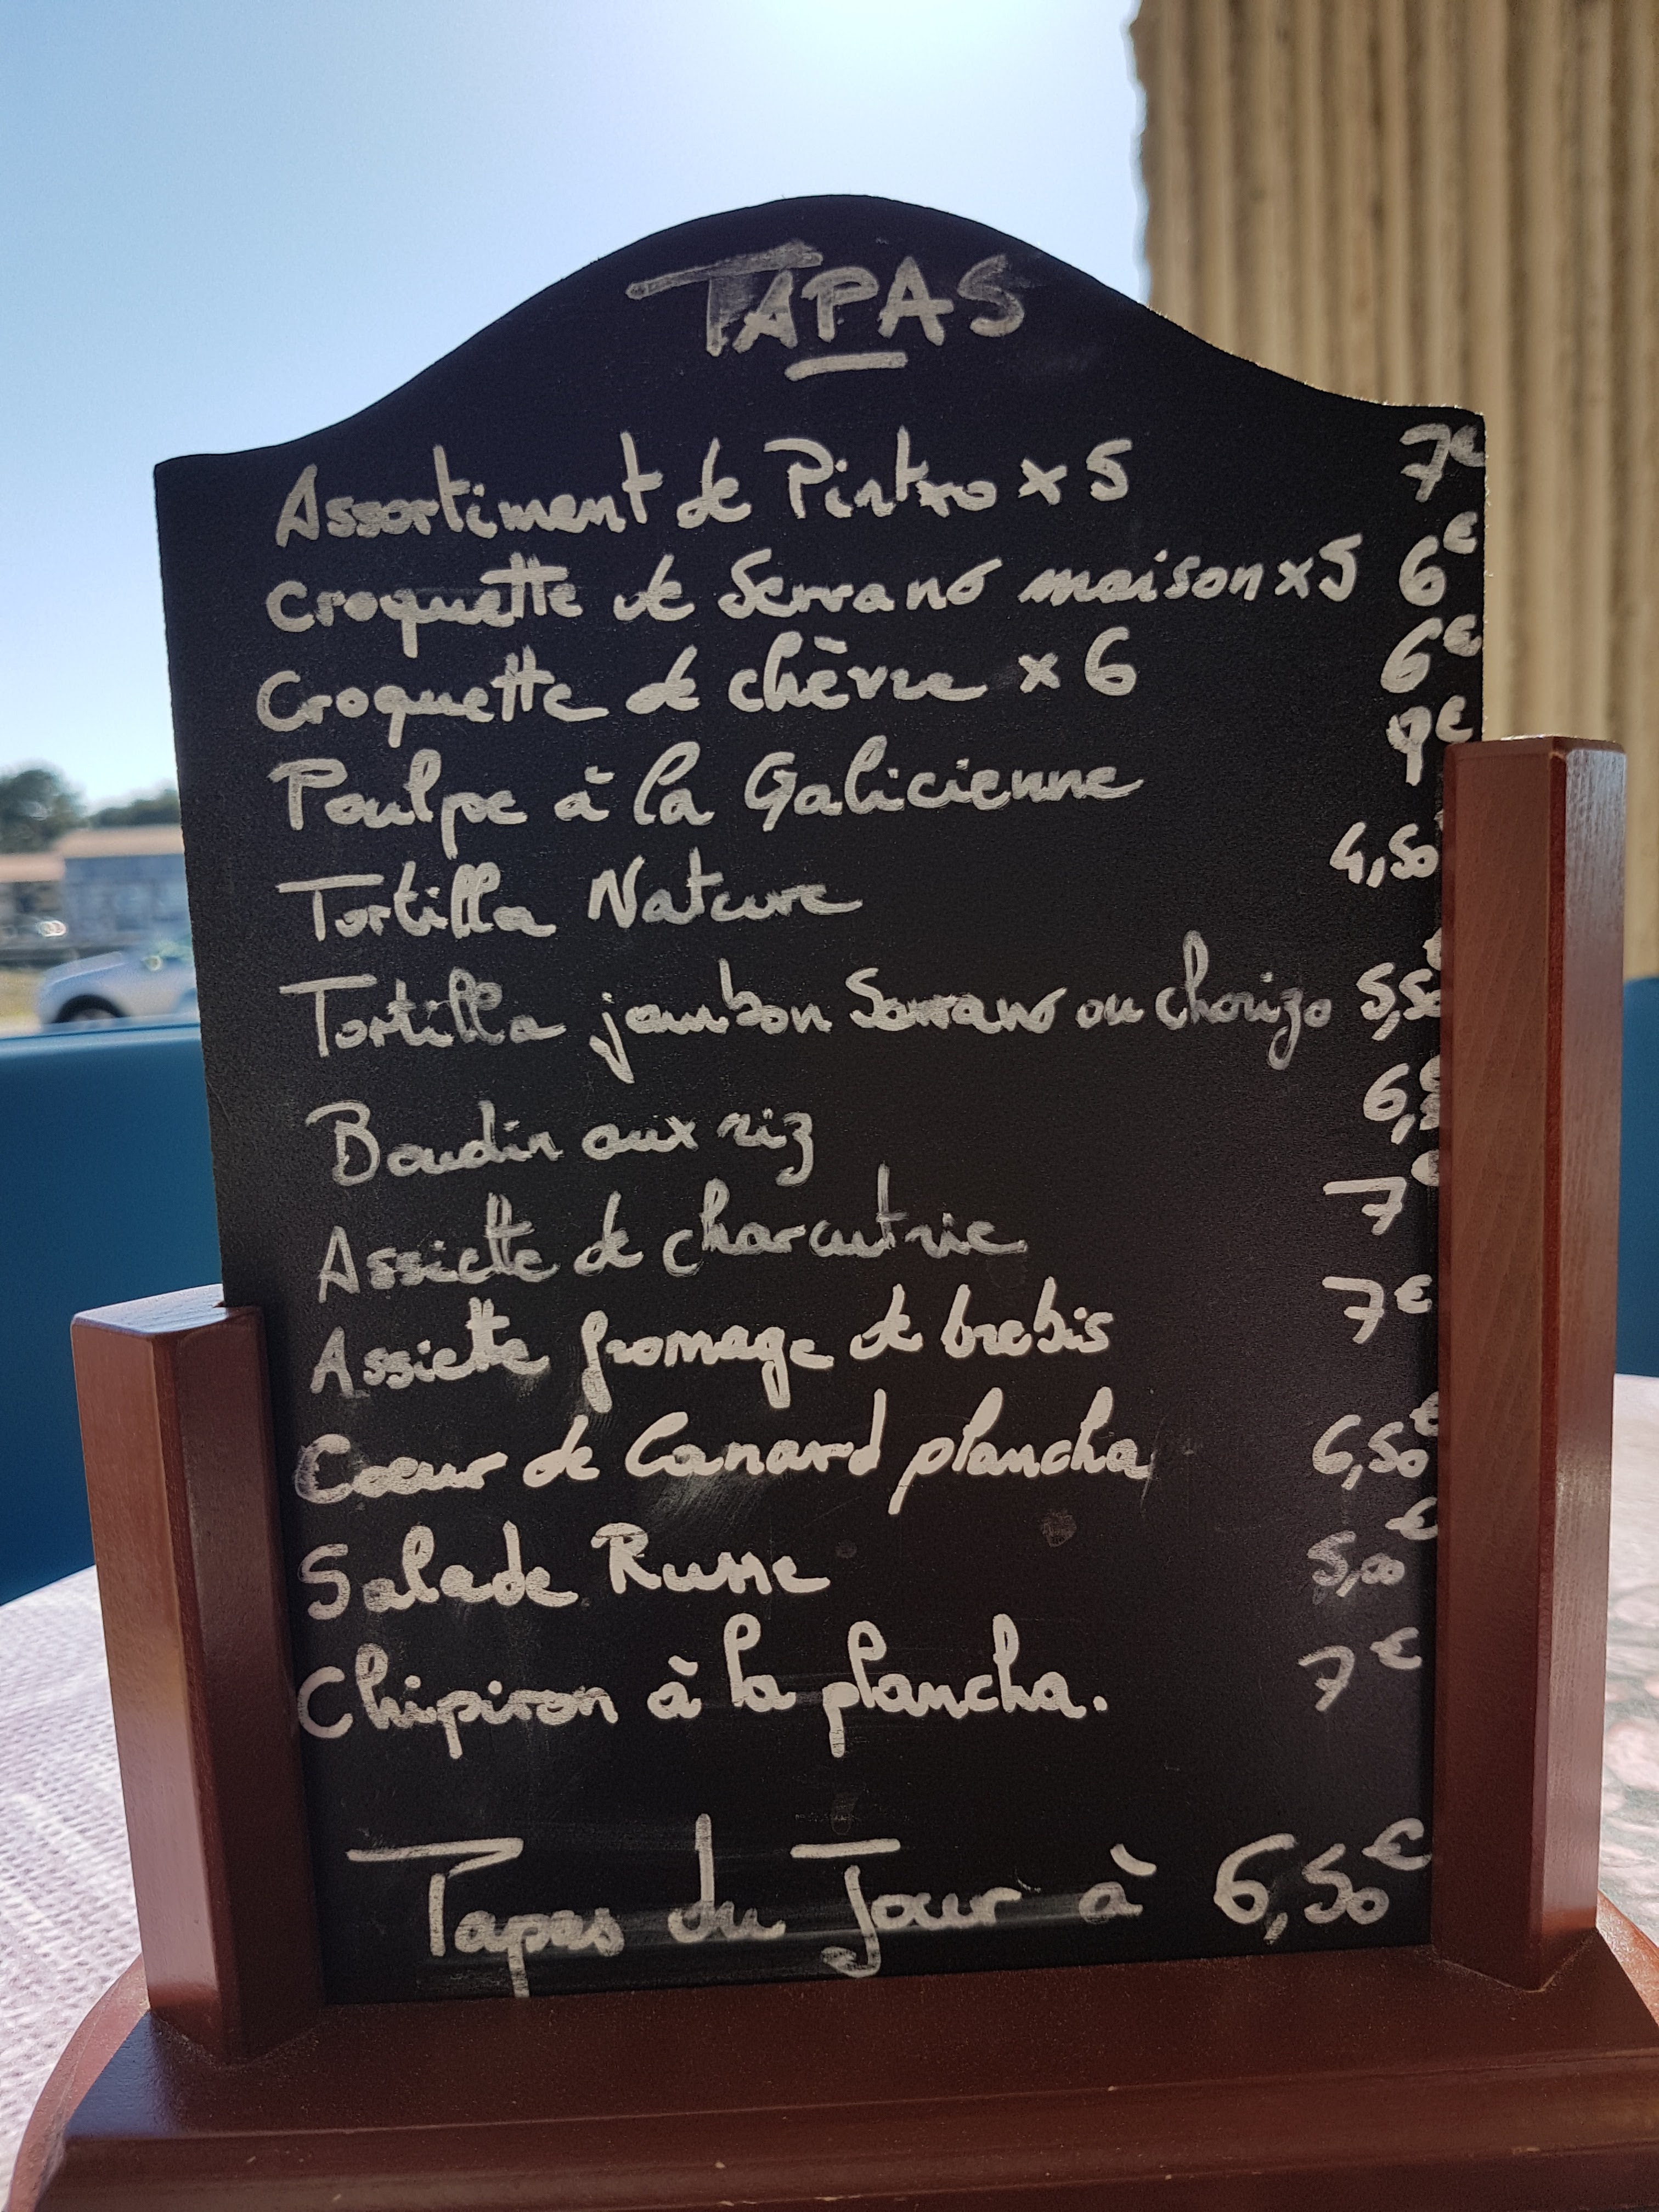 TAPAS
Assortiment de Pintxo x 5 7€
Croquette de Serrano maison x5 6€
Croquette de chèvre x 6 6€
Poulpe à la Galicienne 9€
Tortilla Nature 4,50
Tortilla jambon Serrano ou chorizo 5,50€
Boudin aux riz
Assiette de charcutrie 7€
Assiette fromage de brebis 7€
Coeur de Canard plancha 6,50€
Salade Russe 5,00€
Chipiron à la plancha. 7€
Tapas du Jour à 6,50€